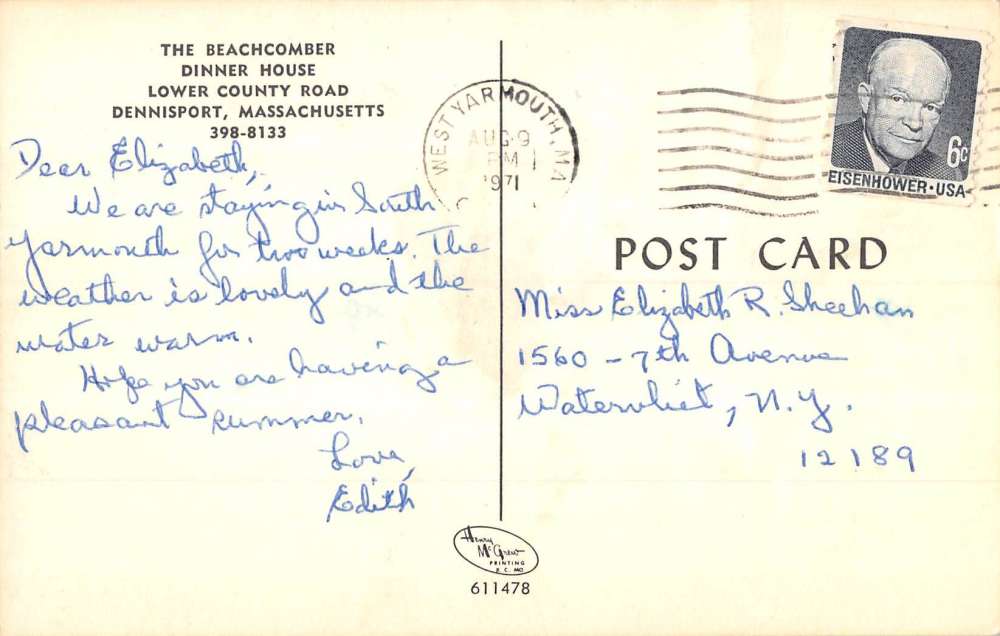 THE BEACHCOMBER
DINNER HOUSE
LOWER COUNTY ROAD
DENNISPORT, MASSACHUSETTS
398-8133
Dear Elizabeth,
We are staying in South
Yarmouth for two weeks. The
weather is lovely and the
water warm.
Hope you are having a
pleasant summer.
Love,
Edith
WEST YARMOUTH, MA
AUG 9
PM
1971
6c
EISENHOWER·USA
POST CARD
Miss Elizabeth R. Sheehan
1560 - 7th Avenue
Watervliet, N.Y.
12189
Henry
McGrew
PRINTING
K. C. MO
611478